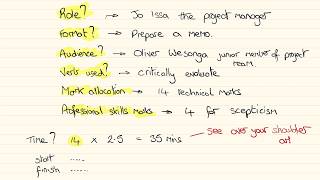 Role? → Jo Issa the project manager
Format? → Prepare a memo.
Audience? → Oliver Wesonga junior member of project team.
Verb used? → critically evaluate
Mark allocation → 14 technical marks
Professional skills marks → 4 for scepticism
Time? 14 x 2.5 = 35 mins → see over your shoulder
start .....
finish .....